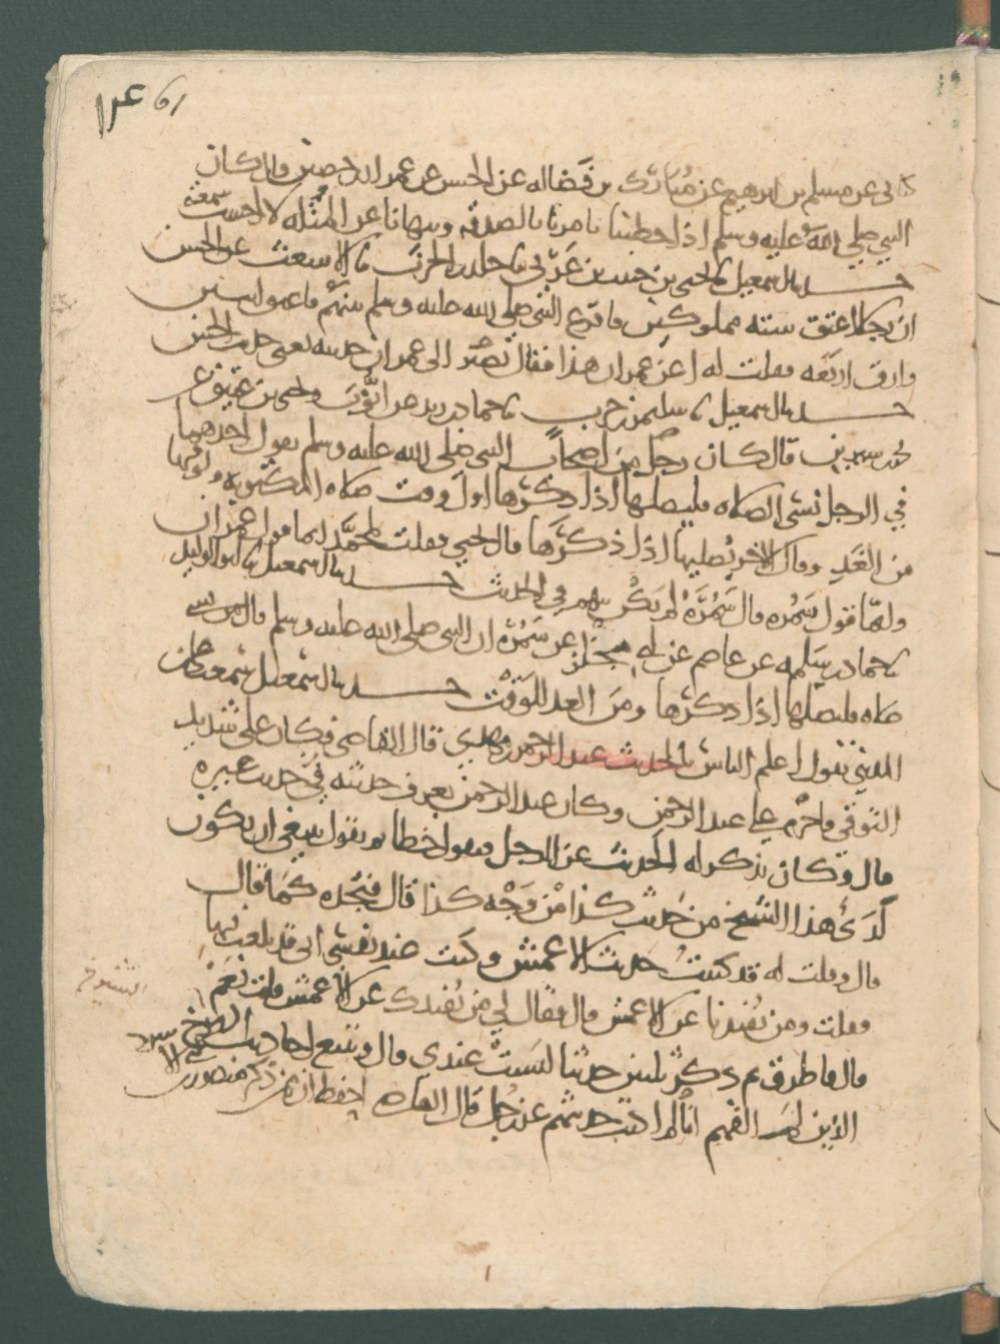 61
بى عن مسلم بن ابرهيم عن مُبَارَك بن فَضَاله عن الحسن عن عمران بن حصين قال كان
النبي صلى الله عليه وسلم اذا خطبنا نامرنا بالصدقه وينهانا عن المُثْله لا احسب سمعه
حدسا اسمعيل يحيى بن حبيب بن عَرَبي خلد بن الحرث الاسعث عن الحسن
ان رجلا اعتق سته مملوكين فاقرع النبي صلى الله عليه وسلم بينهم فاعتق اثنين
وارق اربَعَه فقلت له اعن عمران هذا فقال الى عمران حدثنيه يعنى حدث الحسن
حدسا اسمعيل سليمن بن حرب حماد بن زيد عن ايّوب ويحيى بن عتيق عن
محمد بن سيرين قال كان رجل من اصحاب النبي صلى الله عليه وسلم يقول احدهما
في الرجل نسى الصلاه فليصليها اذا ذكرها اول وقت صلاه المكتوبه
من الغَدِ وقال الاخر يُصليها اذا ذكرَها قال يحيى فقلت لمحمَّد ايهما قول عمران
وايهما قول سَمُره قال سَمُرَة لم يذكر في الحديث حدسا اسمعيل ابو الوليد
حماد بن سلمه عن عاصم عن ابي مجْلَز عن سَمُرة ان النبي صلى الله عليه وسلم قال من نسى
صلاه فليصلها اذا ذكرها ومن الغد للوَقْت حدسا اسمعيل سمعت على بن
المديني يقول اعلم الناس بالحديث عبد الرحمن بن مهدى قال القاضى فكان على شديد
التوقى فاخرُم على عبد الرحمن وكان عبد الرحمن يعرف حديثه في حديث غيره
قال وكان يذكر له الحديث عن الرجل فيقول اخطا ويقول ينبغى ان يكون
هذا الشيخ من حديث كذا من وَجْه كذا قال فنجده كما قال
قال وقلت له قد كتبتُ حديث الاعمش وكنت عند نفسى انى قد بلغت فيها
فقلت ومن يُفيدنا عن الاعمش قال فقال لي من يُفيدك عن الاعمش قلت نَعَم
قال فاطرق ثم ذكر ثلثين حديثا لَيسَتْ عندي قال وتتبع احاديث الشيوخ
الذين لقيتهم انا لم اكتب حديثهم عن رجل قال القاضى احفظ ان ممن ذكر منصور بن
الشيوخ